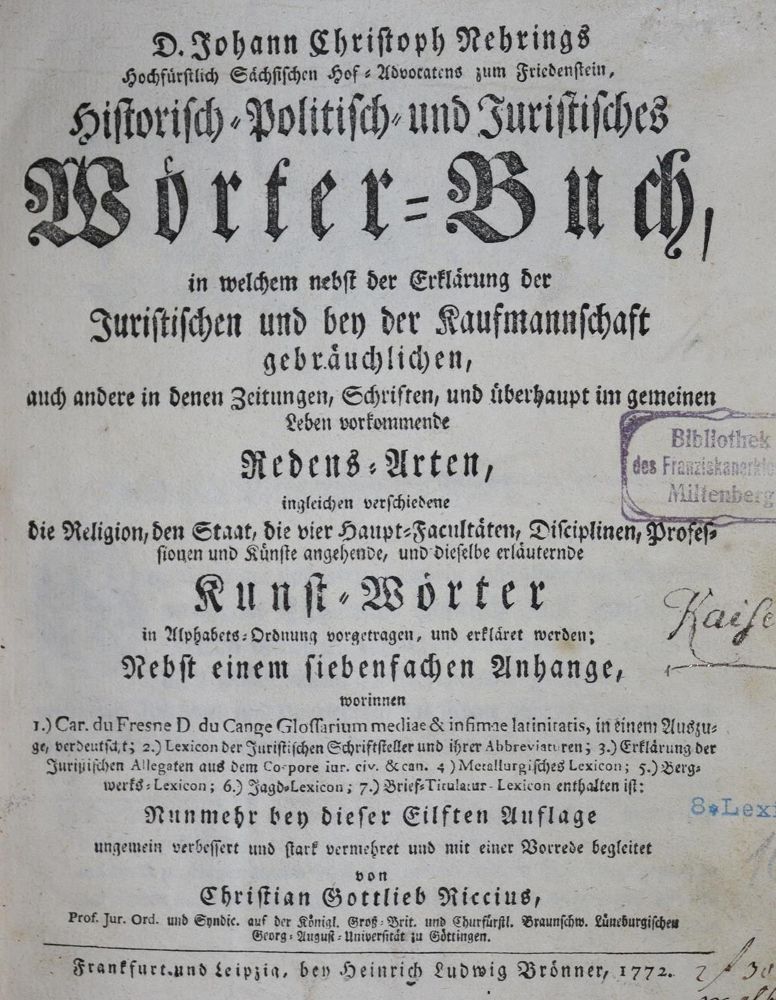 D. Johann Christoph Nehrings
Hochfürstlich Sächsischen Hof-Advocatens zum Friedenstein,
Historisch-Politisch-und Juristisches
Wörter-Buch,
in welchem nebst der Erklärung der
Juristischen und bey der Kaufmannschaft
gebräuchlichen,
auch andere in denen Zeitungen, Schriften, und überhaupt im gemeinen
Leben vorkommende
Redens-Arten,
ingleichen verschiedene
die Religion, den Staat, die vier Haupt-Facultäten, Disciplinen, Profes-
sionen und Künste angehende, und dieselbe erläuternde
Kunst-Wörter
in Alphabets-Ordnung vorgetragen, und erkläret werden;
Nebst einem siebenfachen Anhange,
worinnen
1.) Car. du Fresne D. du Cange Glossarium mediae & infimae latinitatis, in einem Auszu-
ge, verdeutscht; 2.) Lexicon der Juristischen Schriftsteller und ihrer Abbreviaturen; 3.) Erklärung der
Juristischen Allegaten aus dem Corpore iur. civ. & can. 4.) Metallurgisches Lexicon; 5.) Berg-
werks-Lexicon; 6.) Jagd-Lexicon; 7.) Brief-Titulatur-Lexicon enthalten ist:
Nunmehr bey dieser Eilften Auflage
ungemein verbessert und stark vermehret und mit einer Vorrede begleitet
von
Christian Gottlieb Riccius,
Prof. Jur. Ord. und Syndic. auf der Königl. Groß-Brit. und Churfürstl. Braunschw. Lüneburgischen
Georg-August-Universität zu Göttingen.
Frankfurt und Leipzig, bey Heinrich Ludwig Brönner, 1772.
Bibliothek
des Franziskanerklo
Miltenberg
Kaise
8° Lexi